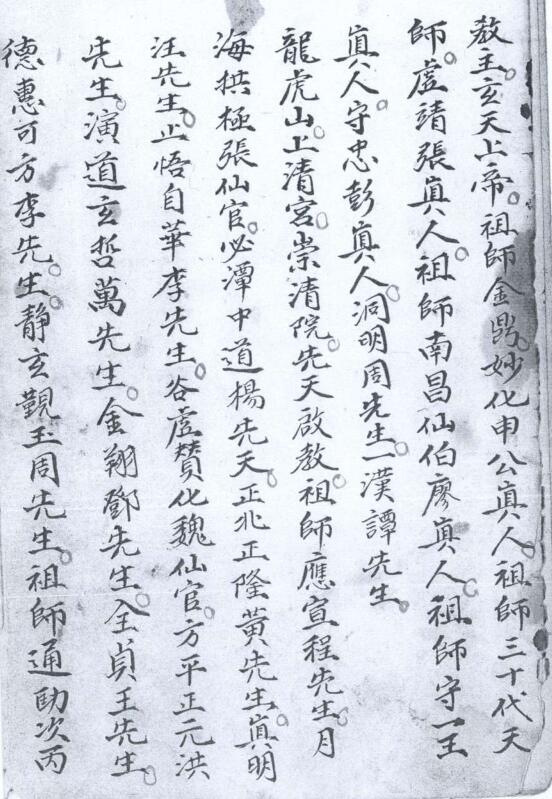 教主。玄天上帝。祖師金鼎妙化申公眞人。祖師三十代天
師。虛靖張眞人。祖師南昌仙伯廖眞人。祖師守一王
眞人。守忠彭眞人。洞明周先生。一漢譚先生。
龍虎山上清宮。崇清院。先天啟教。祖師應宣程先生。月
海拱極張仙官。必潭中道楊先天。正北正隆黃先生。眞明
汪先生。止悟自華李先生。谷虛贊化魏仙官。方平正元洪
先生。演道玄哲萬先生。金翔鄧先生。全貞王先生。
德惠可方李先生。靜玄觀玉周先生。祖師通勛次丙